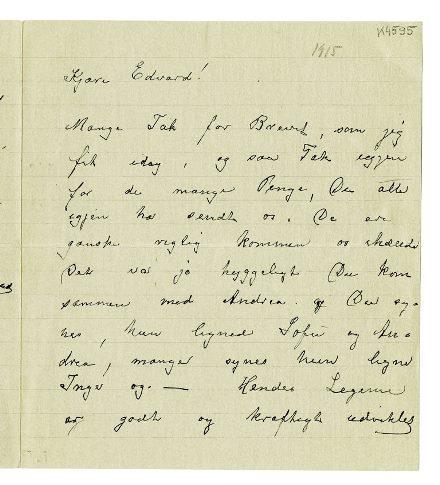 K4595
1915
Kjære Edvard!
Mange Tak for Brevet, som jeg
fik idag, og saa Tak igjen
for de mange Penge, Du atter
igjen ha sendt os. De er
ganske rigtig kommen os ihænde
Det var jo hyggeligt Du kom
sammen med Andrea. Du sy-
nes, hun ligned Sofie og An-
drea, mange synes hun ligne
Inger og. — Hendes Legeme
er godt og kraftigt udvikles